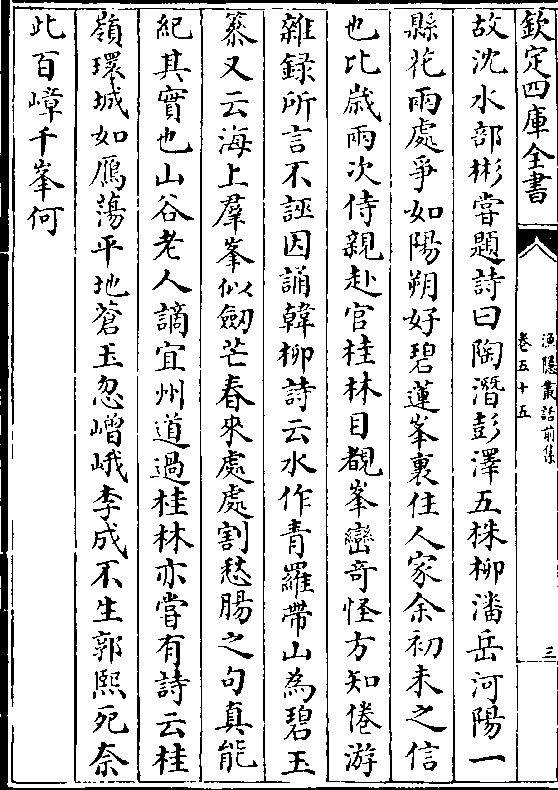 欽定四庫全書
漁隱叢話前集
卷五十五
三
故沈水部彬嘗題詩曰陶潛彭澤五株柳潘岳河陽一
縣花兩處爭如陽朔好碧蓮峯裏住人家余初未之信
也比歲兩次侍親赴官桂林目覩峯巒奇怪方知倦游
雜錄所言不誣因誦韓柳詩云水作青羅帶山為碧玉
篸又云海上羣峯似劒芒春來處處割愁腸之句真能
紀其實也山谷老人謫宜州道過桂林亦嘗有詩云桂
嶺環城如鴈蕩平地蒼玉忽嶒峨李成不生郭熙死奈
此百嶂千峯何